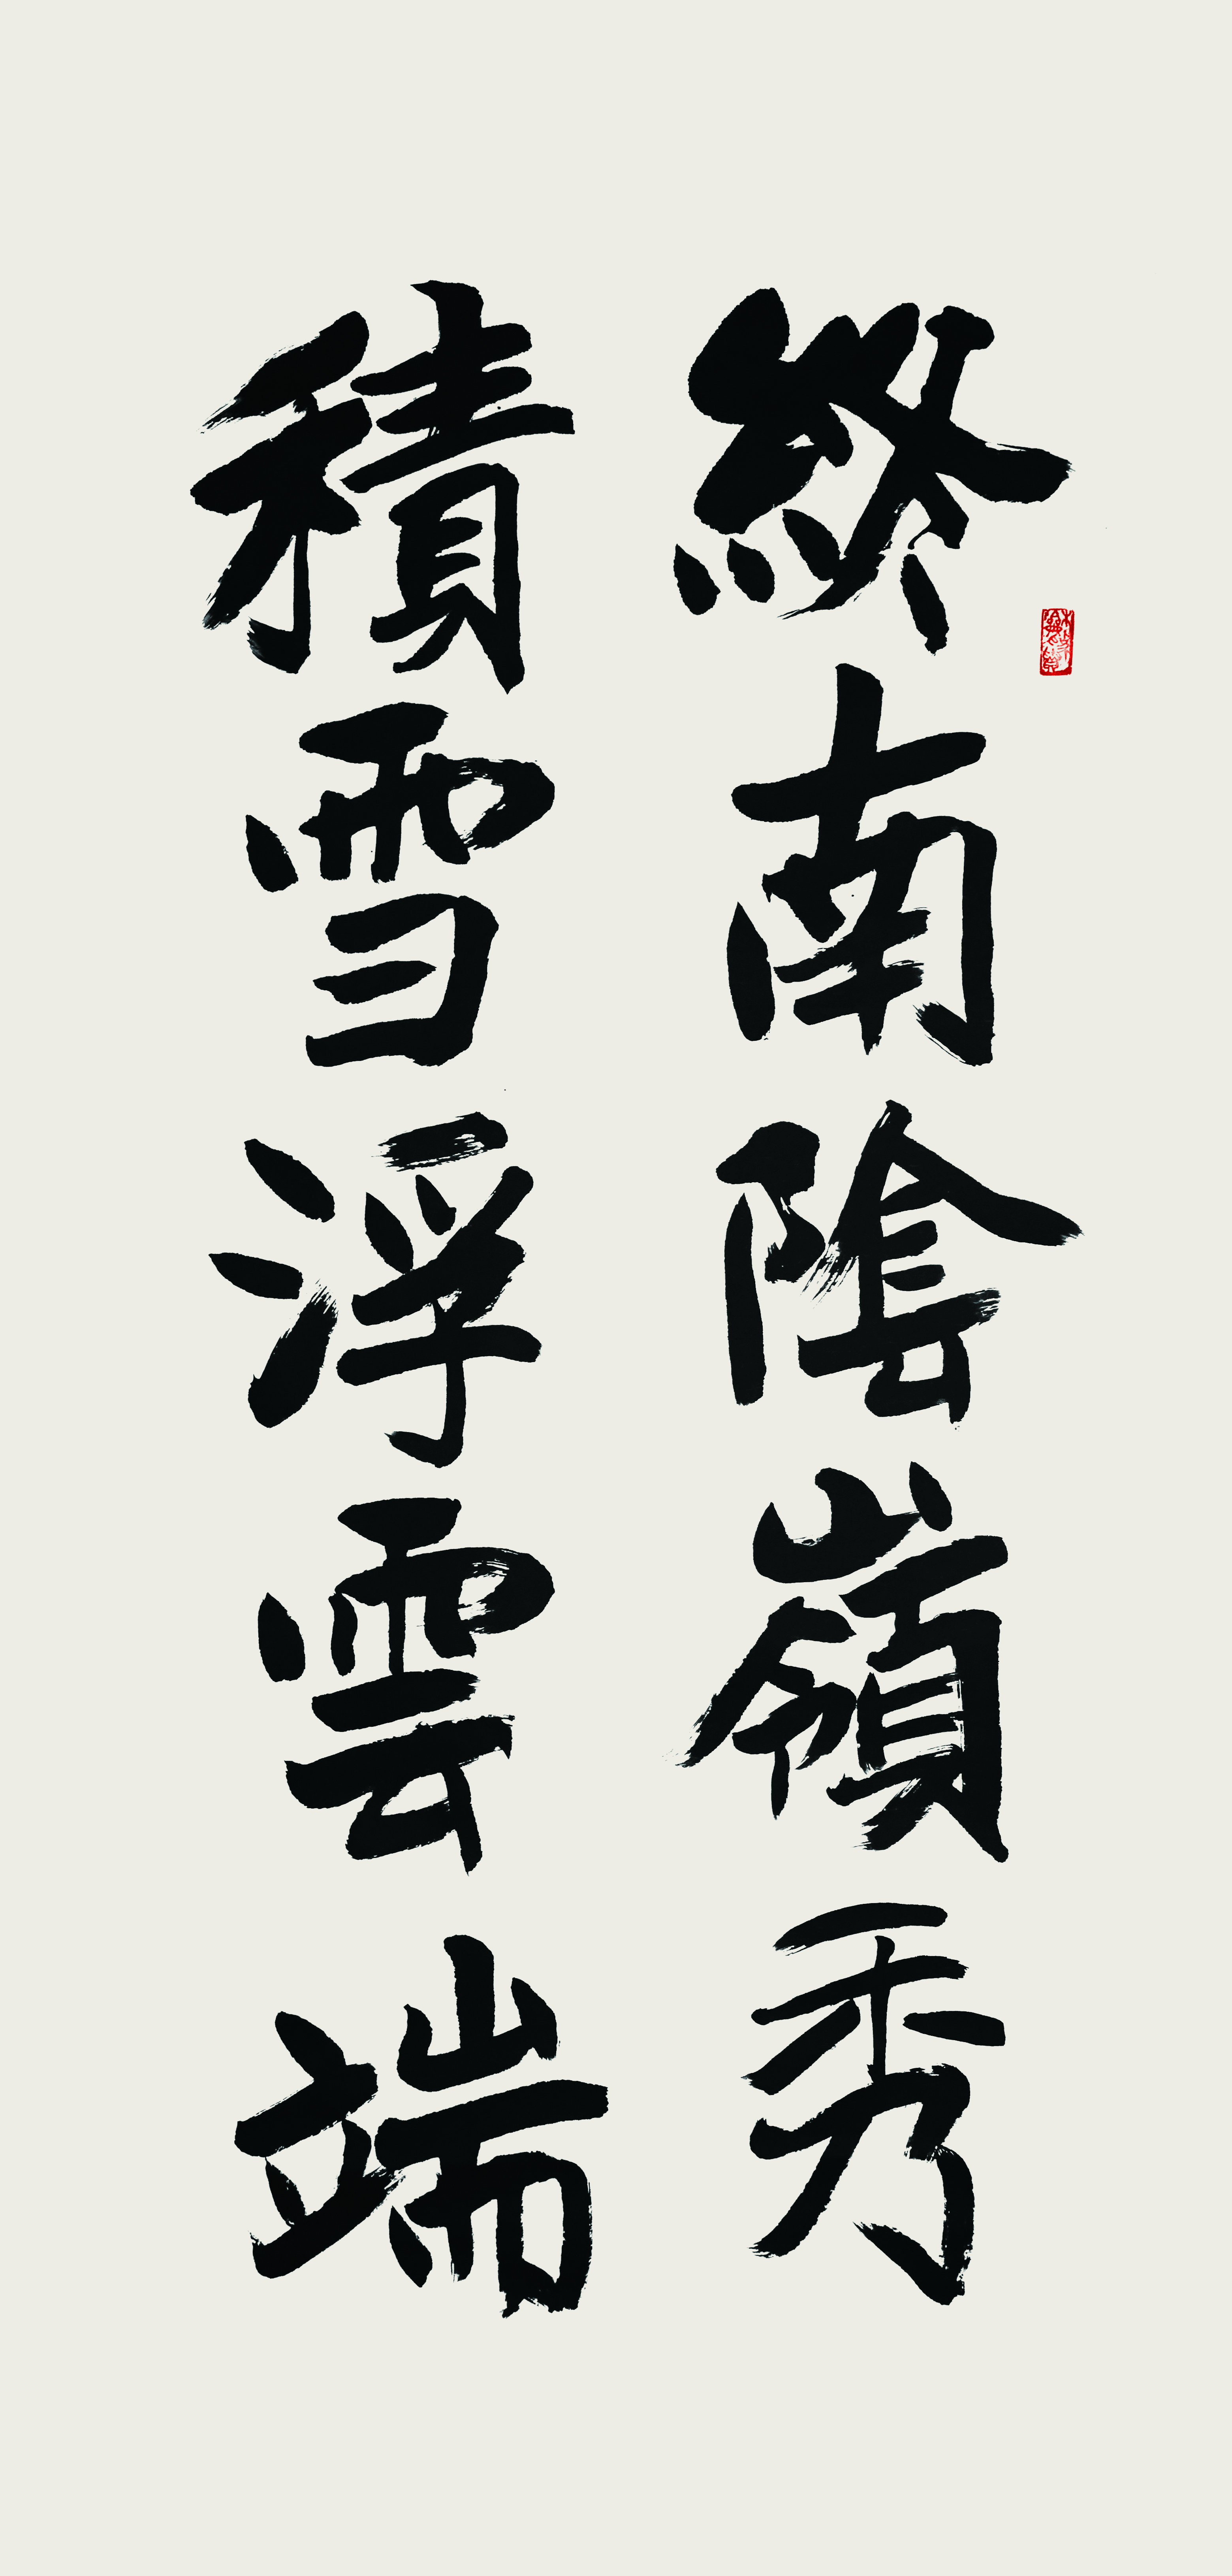 終南陰嶺秀
積雪浮雲端